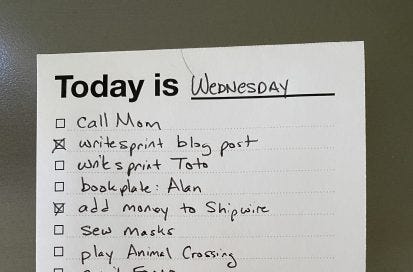 Today is WEDNESDAY
call Mom
writesprint blog post
writesprint Toto
bookplate: Alan
add money to Shipwire
sew masks
play Animal Crossing